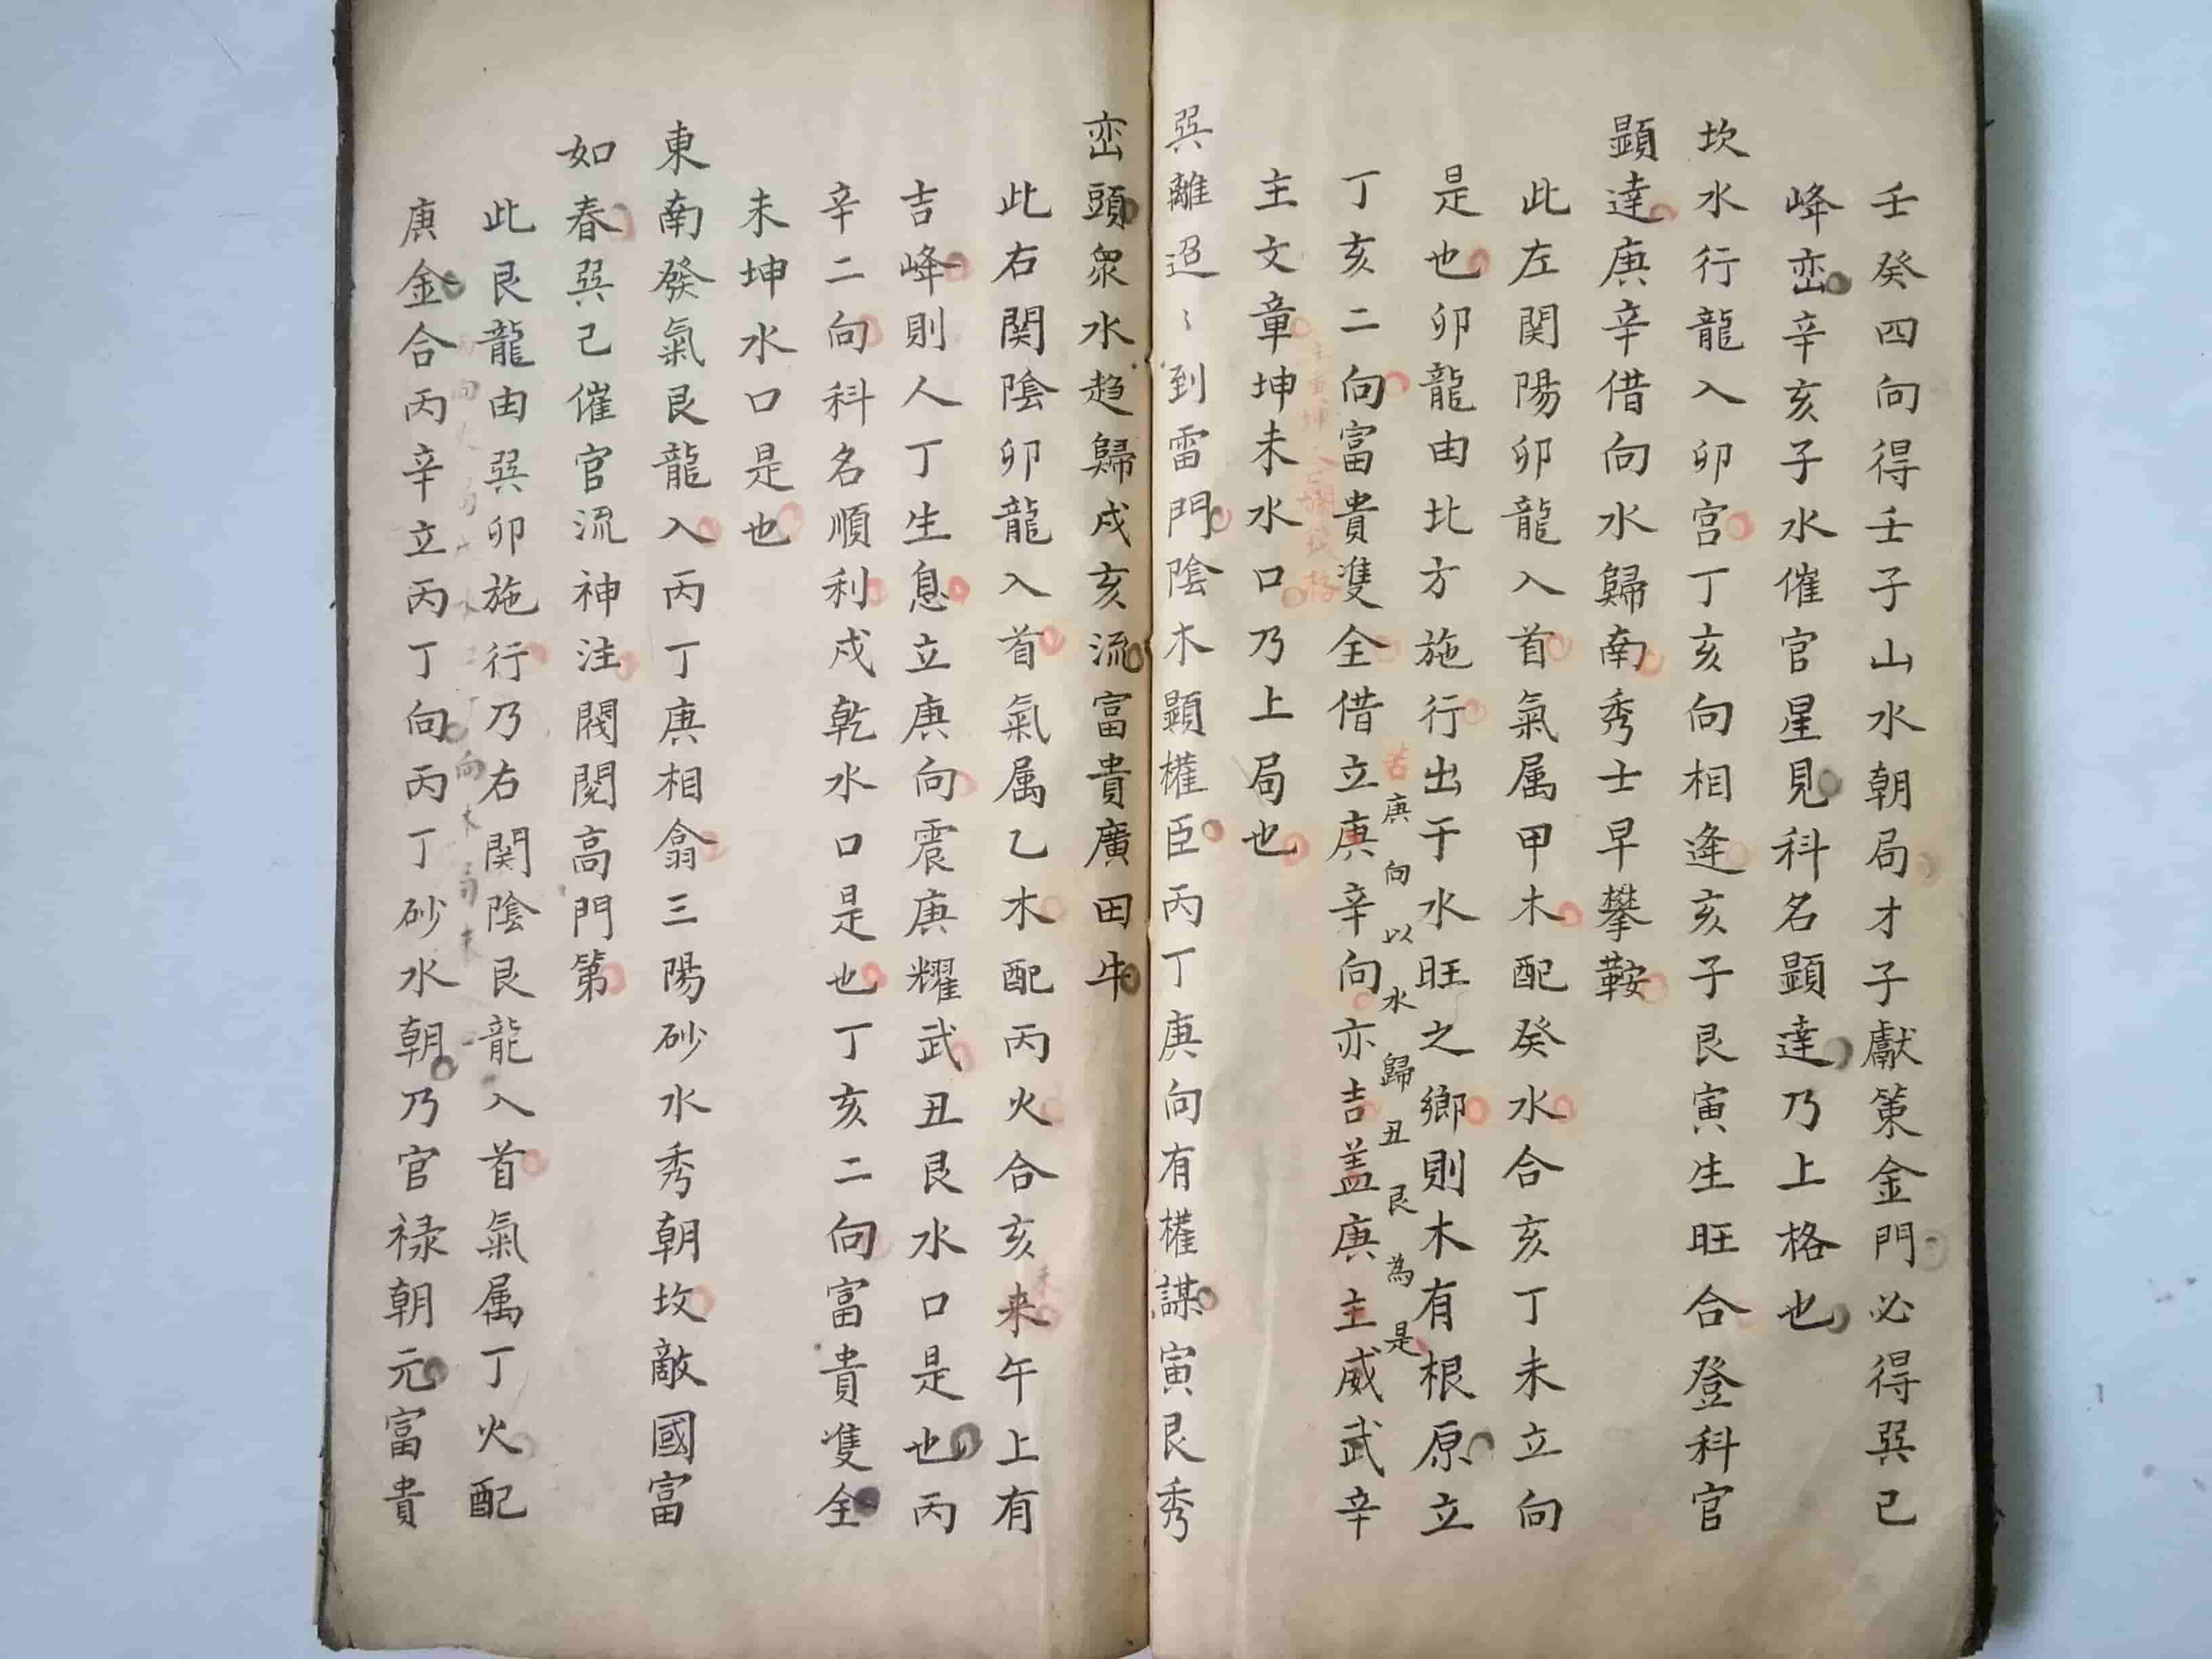 壬癸四向得壬子山水朝局才子獻策金門必得巽巳
峰巒辛亥子水催官星見科名顕達乃上格也
坎水行龍入卯宫丁亥向相逢亥子艮寅生旺合登科官
顕達庚辛借向水歸南秀士早攀鞍
此左関陽卯龍入首氣属甲木配癸水合亥丁未立向
是也卯龍由北方施行出于水旺之鄉則木有根原立
苦庚向以水歸丑艮為是
丁亥二向富貴隻全借立庚辛向亦吉盖庚主威武辛
主文章坤未水口乃上局也
巽離迢〻到雷門陰木顕權臣丙丁庚向有權謀寅艮秀
巒頭衆水趋歸戍亥流富貴廣田牛
此右関陰卯龍入首氣属乙木配丙火合亥来午上有
吉峰則人丁生息立庚向震庚耀武丑艮水口是也丙
辛二向科名順利戍乾水口是也丁亥二向富貴隻全
未坤水口是也
東南發氣艮龍入丙丁庚相翕三陽砂水秀朝坟敵國富
如春巽己催官流神注閥閲高門第
此艮龍由巽卯施行乃右関陰艮龍入首氣属丁火配
庚金合丙辛立丙丁向丙丁砂水朝乃官禄朝元富貴